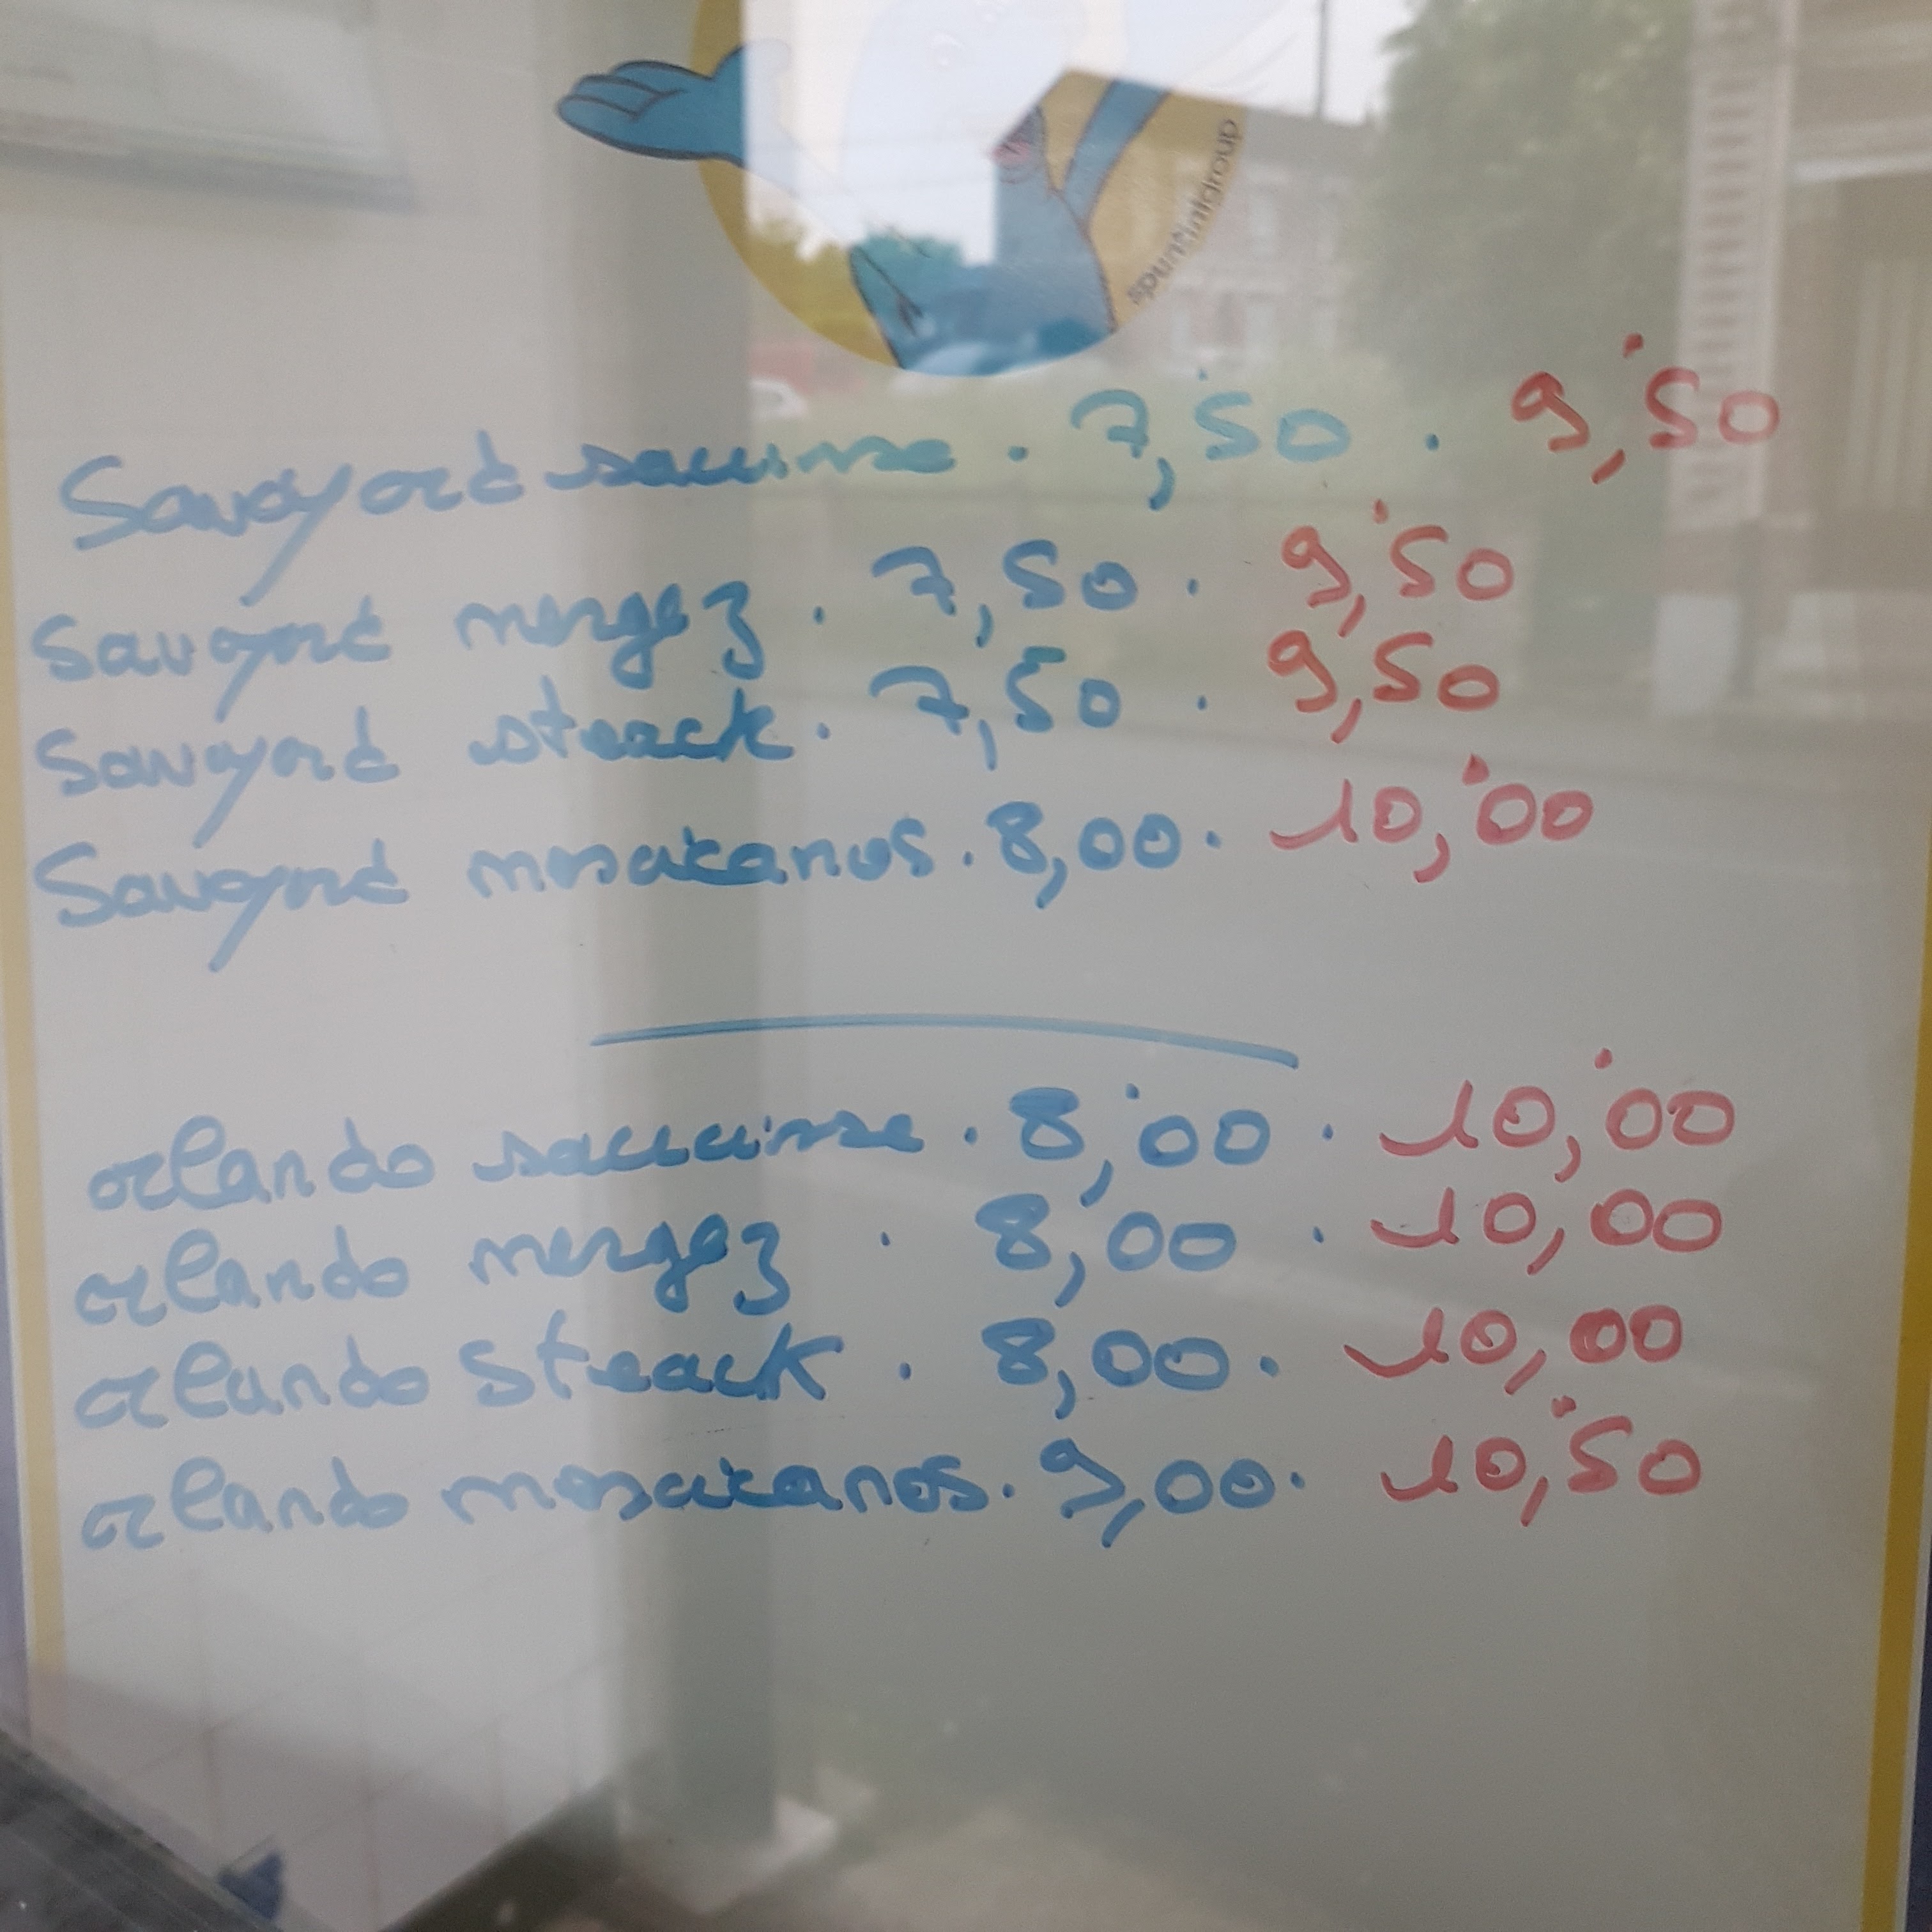 spuntinigroup
Savoyard saucisse . 7,50 . 9,50
Savoyard mergez . 7,50 . 9,50
Savoyard steack . 7,50 . 9,50
Savoyard mexicanos . 8,00 . 10,00
orlando saucisse . 8,00 . 10,00
orlando mergez . 8,00 . 10,00
orlando steack . 8,00 . 10,00
orlando mexicanos . 9,00 . 10,50